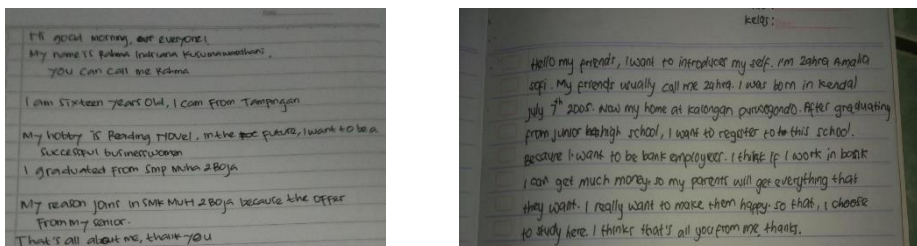 Hi good morning, everyone!
My name is Rahma Indriana Kusumawardhani.
you can call me Rahma
I am sixteen years old, I com from Tampingan
My hobby is Reading Novel, in the future, I want to be a
successful businesswoman
I graduated from smp Muha 2 Boja
My reason joins in SMK MUH 2 Boja because the offer
From my senior.
That's all about me, thank you
kelas:
Hello my friends, I want to introduces my self. I'm Zahra Amalia
sofi. My friends usually call me Zahra. I was born in Kendal
july 7th 2005. Now my home at kalongan purwogondo. After graduating
from junior high school, I want to register to this school.
Because I want to be bank employeer. I think if I work in bank
I can get much money. so my parents will get everything that
they want. I really want to make them happy. so that, I choose
to study here. I thinks that's all you from me, thanks.